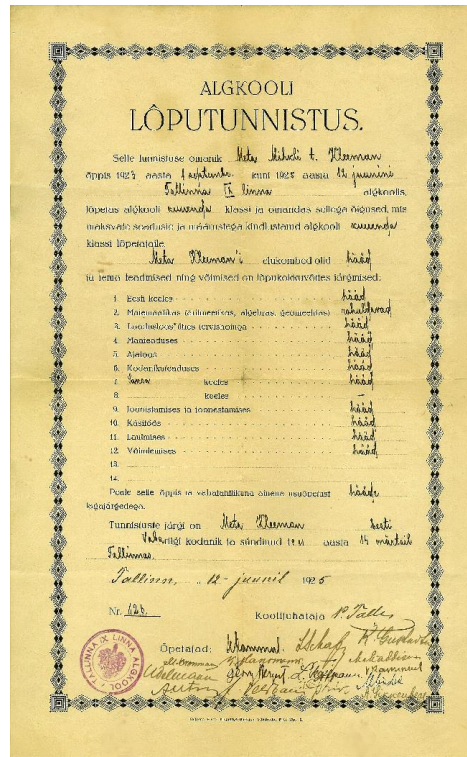 ALGKOOLI
LÕPUTUNNISTUS.
Selle tunnistuse omanik Meta Mihkli t. Kleeman
õppis 1923 aasta 1 septembr. kuni 1925 aasta 12 juunini
Tallinna IX linna algkoolis,
lõpetas algkooli kuuenda klassi ja omandas sellega õigused, mis
maksvate seaduste ja määrustega kindlustatud algkooli kuuenda
klassi lõpetajaile.
Meta Kleeman'i elukombed olid hääd
ja tema teadmised ning võimised on lõpukokkuvõttes järgmised:
1. Eesti keeles hääd
2. Matemaatikas (aritmeetikas, algebras, geomeetrias) rahuldavad
3. Loodusloos ühes tervishoiuga hääd
4. Maateaduses hääd
5. Ajaloos hääd
6. Kodanikuteaduses hääd
7. Saksa keeles hääd
8. keeles –
9. Joonistamises ja joonestamises hääd
10. Käsitöös hääd
11. Laulmises hääd
12. Võimlemises hääd
13.
14.
Peale selle õppis ta vabatahtlikkna ainena usuõpetust häädе
tagajärgedega.
Tunnistuste järgi on Meta Kleeman Eesti
Vabariigi kodanik ja sündinud aasta 14 märtsil
Tallinnas.
Tallinn, 12 - juunil 1925
Nr. 126. Koolijuhataja P. Talts
Õpetajad:
TALLINNA IX LINNA ALGKOOL